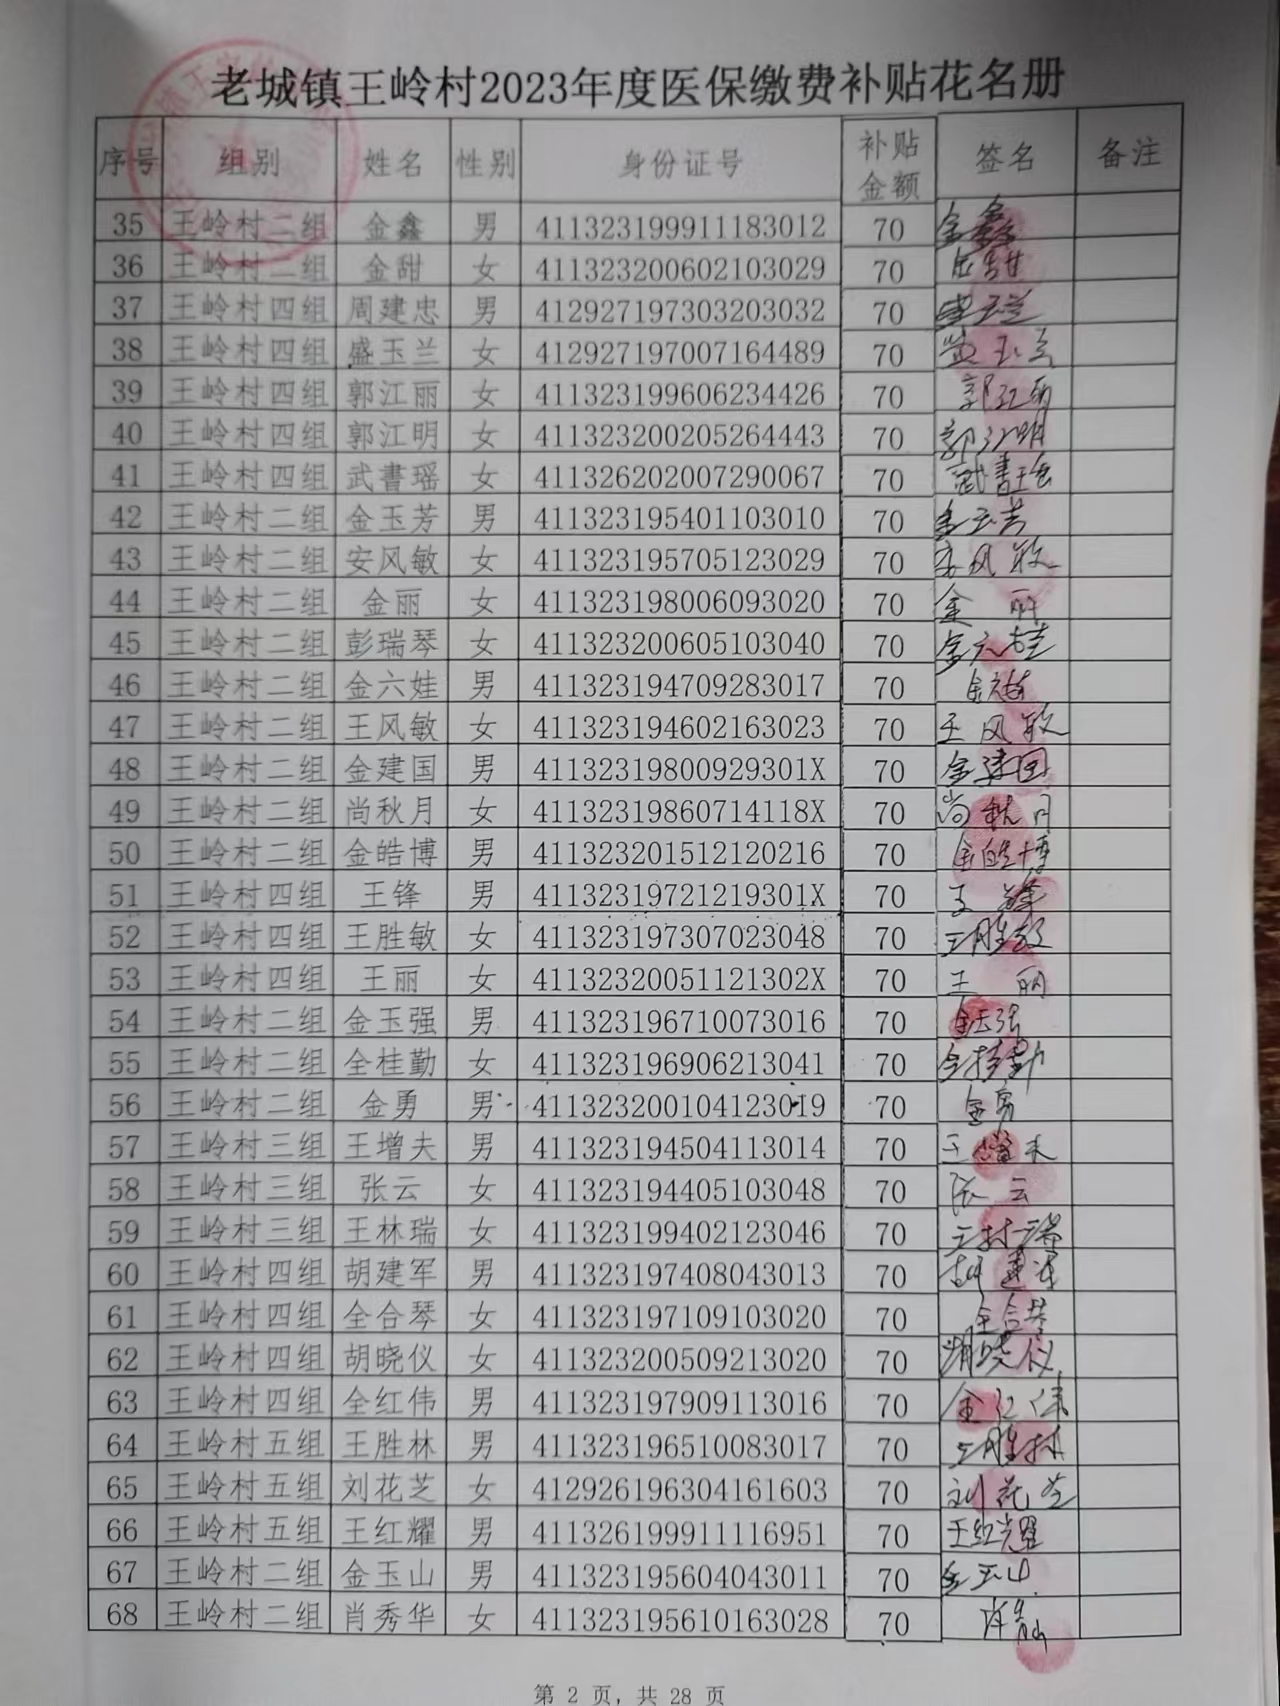 老城镇王岭村2023年度医保缴费补贴花名册
序号 组别 姓名 性别 身份证号 补贴金额 签名 备注
35 王岭村二组 金鑫 男 411323199911183012 70 金鑫
36 王岭村二组 金甜 女 411323200602103029 70 金甜
37 王岭村四组 周建忠 男 412927197303203032 70
38 王岭村四组 盛玉兰 女 412927197007164489 70
39 王岭村四组 郭江丽 女 411323199606234426 70 郭江丽
40 王岭村四组 郭江明 女 411323200205264443 70 郭江明
41 王岭村四组 武書瑶 女 411326202007290067 70 武書瑶
42 王岭村二组 金玉芳 男 411323195401103010 70 金玉芳
43 王岭村二组 安风敏 女 411323195705123029 70 安风敏
44 王岭村二组 金丽 女 411323198006093020 70 金丽
45 王岭村二组 彭瑞琴 女 411323200605103040 70
46 王岭村二组 金六娃 男 411323194709283017 70
47 王岭村二组 王风敏 女 411323194602163023 70 王风敏
48 王岭村二组 金建国 男 41132319800929301X 70 金建国
49 王岭村二组 尚秋月 女 41132319860714118X 70 尚秋月
50 王岭村二组 金皓博 男 411323201512120216 70 金皓博
51 王岭村四组 王锋 男 41132319721219301X 70 王锋
52 王岭村四组 王胜敏 女 411323197307023048 70 王胜敏
53 王岭村四组 王丽 女 41132320051121302X 70 王丽
54 王岭村二组 金玉强 男 411323196710073016 70 金玉强
55 王岭村二组 全桂勤 女 411323196906213041 70 全桂勤
56 王岭村二组 金勇 男 411323200104123019 70 金勇
57 王岭村三组 王增夫 男 411323194504113014 70 王增夫
58 王岭村三组 张云 女 411323194405103048 70 张云
59 王岭村三组 王林瑞 女 411323199402123046 70 王林瑞
60 王岭村四组 胡建军 男 411323197408043013 70 胡建军
61 王岭村四组 全合琴 女 411323197109103020 70 全合琴
62 王岭村四组 胡晓仪 女 411323200509213020 70 胡晓仪
63 王岭村四组 全红伟 男 411323197909113016 70 全红伟
64 王岭村五组 王胜林 男 411323196510083017 70 王胜林
65 王岭村五组 刘花芝 女 412926196304161603 70 刘花芝
66 王岭村五组 王红耀 男 411326199911116951 70 王红耀
67 王岭村二组 金玉山 男 411323195604043011 70 金玉山
68 王岭村二组 肖秀华 女 411323195610163028 70
第 2 页，共 28 页